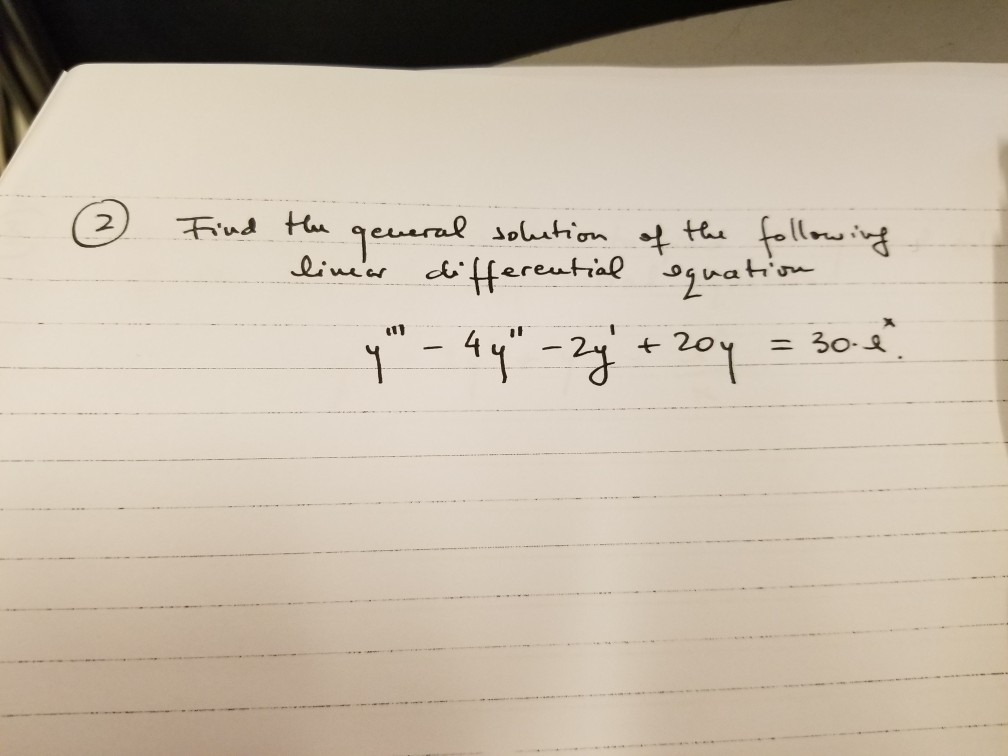 ② Find the general solution of the following
linear differential equation
y''' - 4y'' - 2y' + 20y = 30·eˣ.